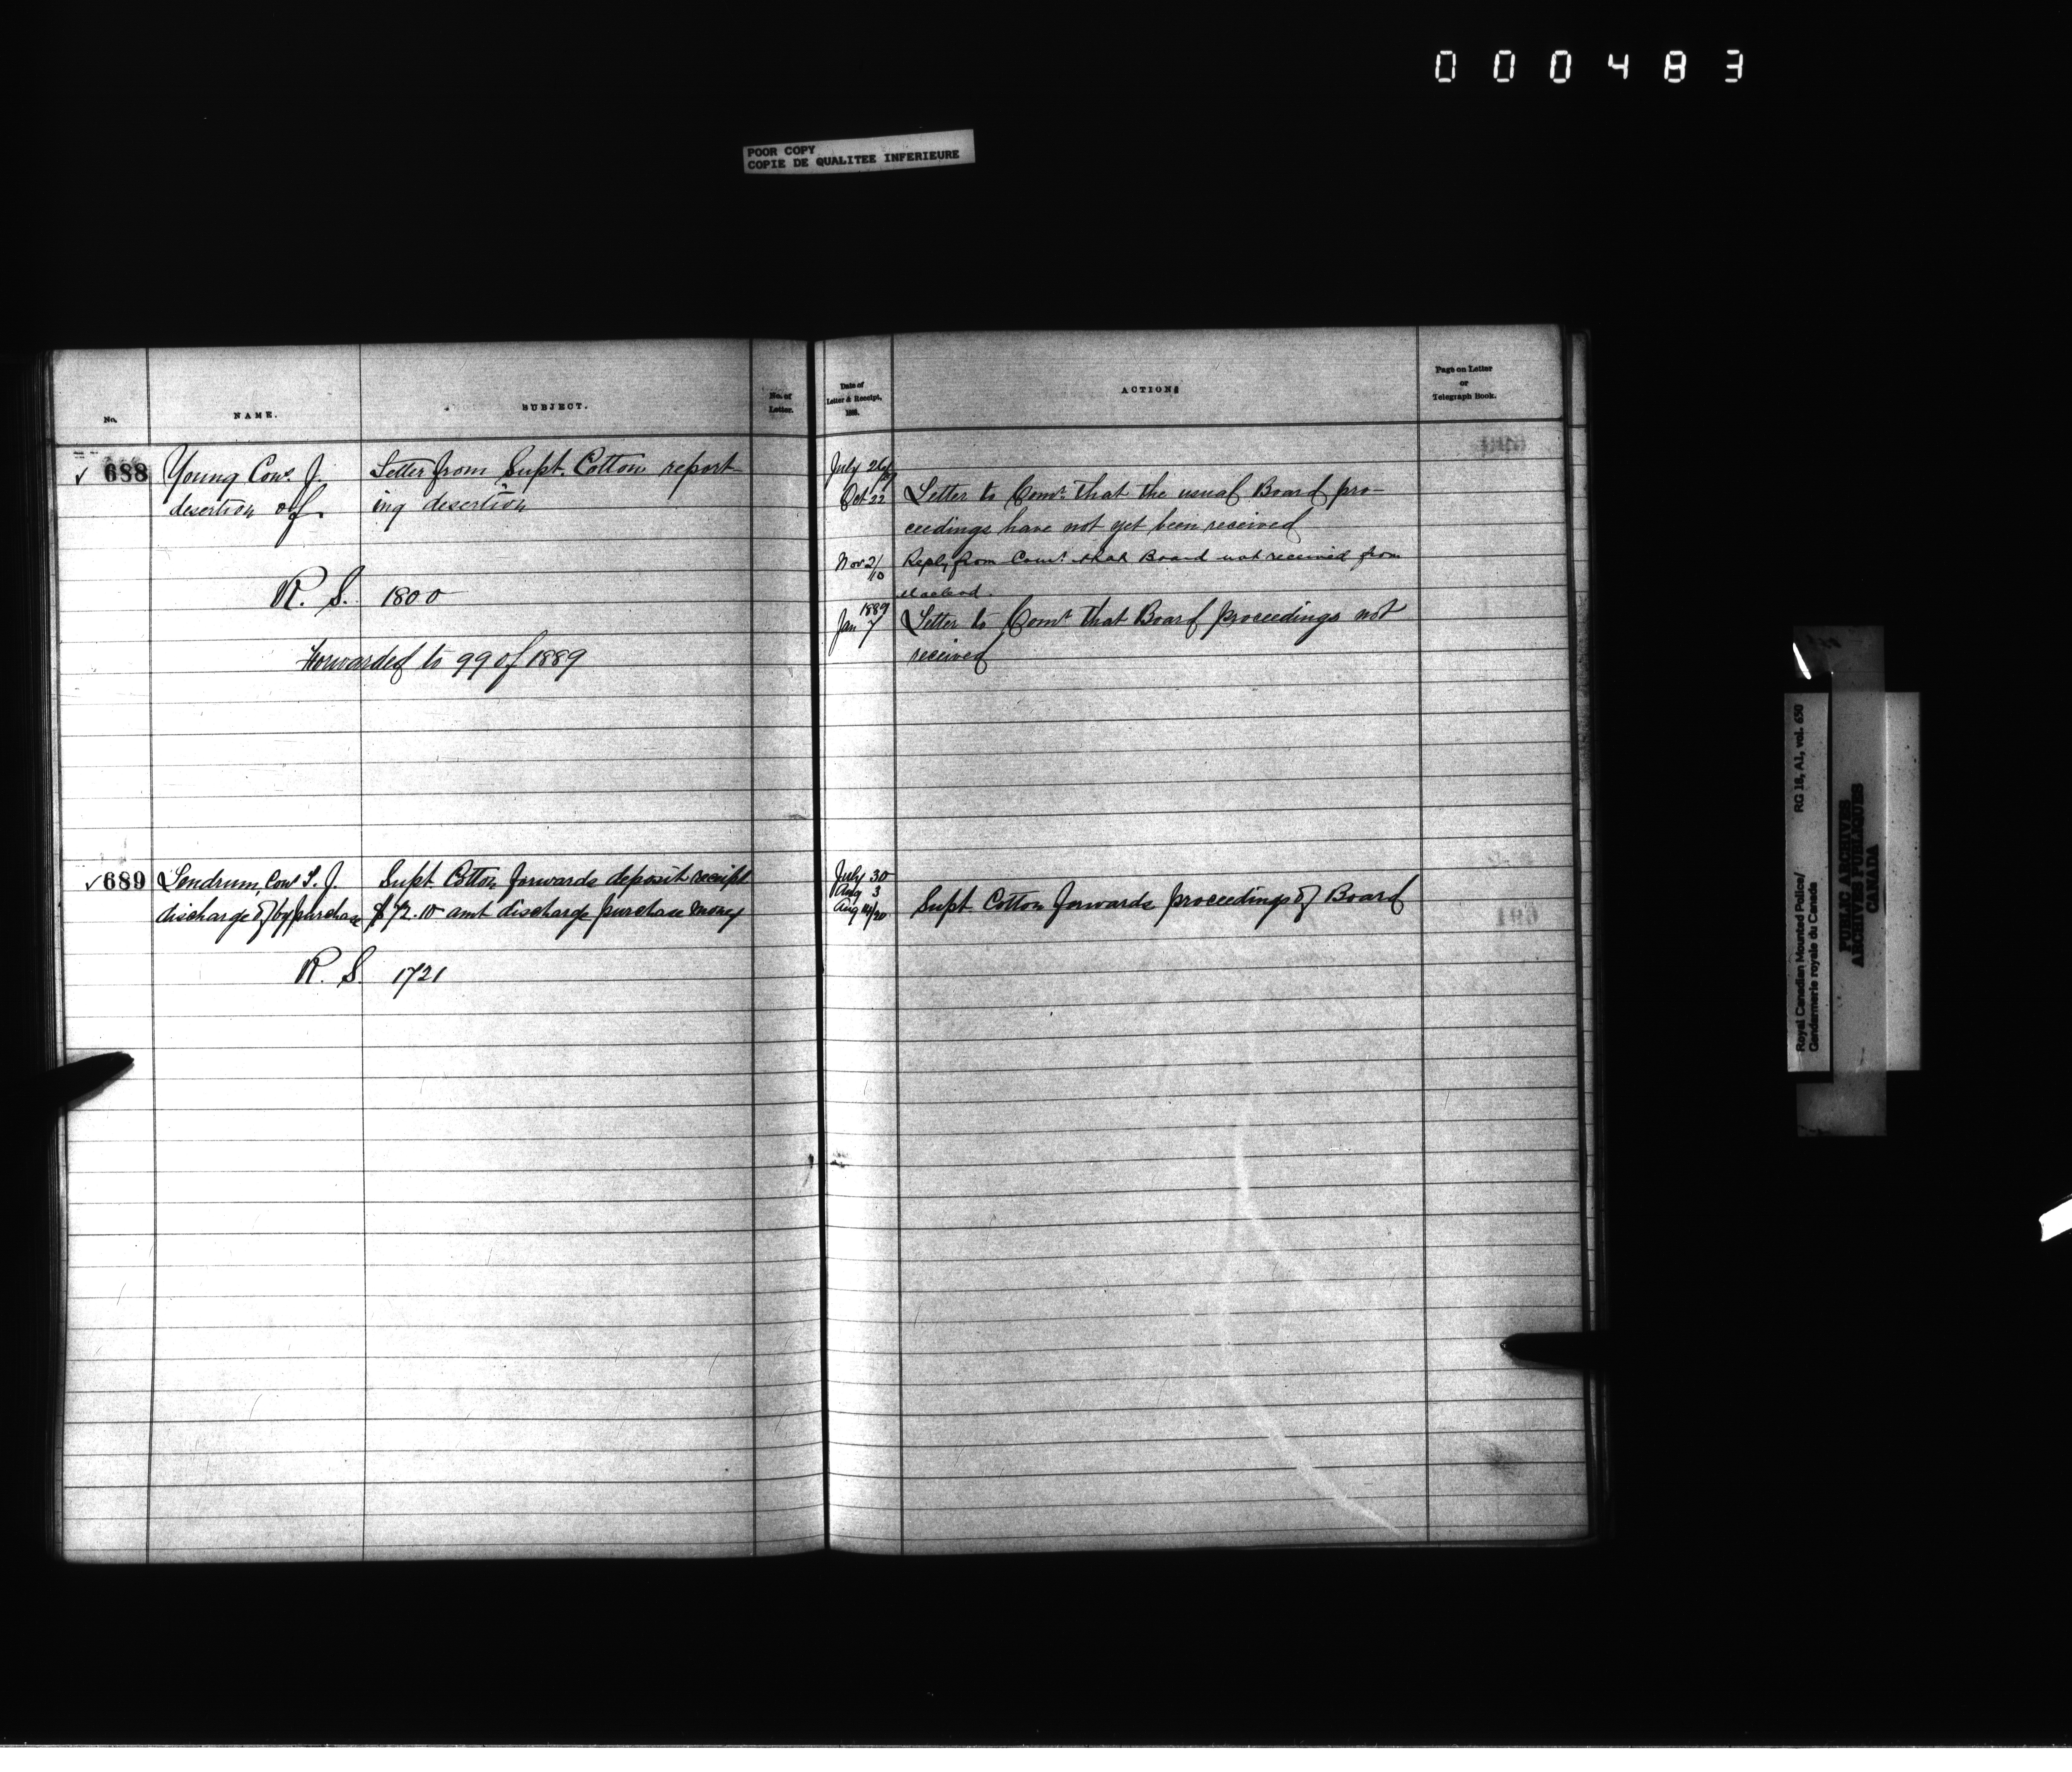 000483
POOR COPY
COPIE DE QUALITEE INFERIEURE
No.
NAME.
SUBJECT.
No. of
Letter.
Date of
Letter & Receipt,
1888.
ACTIONS
Page on Letter
or
Telegraph Book.
✓ 688 Young Cons. J. Letter from Supt. Cotton report-
desertion of. ing desertion
R. S. 1800
Forwarded to 99 of 1889
July 26
Oct 22 Letter to Comr. that the usual Board pro-
ceedings have not yet been received
Nov 2/10 Reply from Comr. that Board not received from
Macleod.
1889
Jan 7 Letter to Comr. that Board proceedings not
received
✓ 689 Lendrum, Cons T. J. Supt. Cotton forwards deposit receipt
discharge of by purchase $72.10 amt discharge purchase money
R. S. 1721
July 30
Aug 3
Aug 14/20 Supt. Cotton forwards proceedings of Board
Royal Canadian Mounted Police/ RG 18, A1, vol. 650
Gendarmerie royale du Canada
PUBLIC ARCHIVES
ARCHIVES PUBLIQUES
CANADA